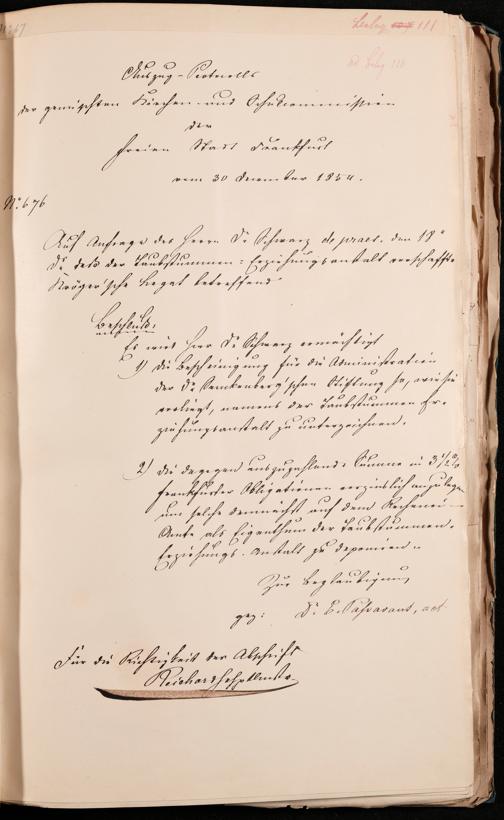 Beleg 111
ad Beleg 110
Auszug-Protocolls
der gemischten Kirchen- und Schulcommission
der
freien Stadt Frankfurt
vom 30 December 1854.
No. 676
Auf Anfrage des Herrn Dr Schwarz de praes. den 18n
ds. das der Taubstummen-Erziehungsanstalt verschaffte
Kröger'sche Legat betreffend
Beschluß:
Es wird Herr Dr Schwarz ermächtigt
1) die Bescheinigung für die Administration
der Dr Senckenberg'schen Stiftung so, wie sie
vorliegt, namens der Taubstummen Er-
ziehungsanstalt zu unterzeichnen.
2) die dagegen auszuzahlende Summe in 3 1/2 %
Frankfurter Obligationen verzinslich anzulegen
um solche demnächst auf dem Rechenei-
Amte als Eigenthum der Taubstummen-
Erziehungs-Anstalt zu deponiren.
Zur Beglaubigung
gez: Dr. E. Passavant, act
Für die Richtigkeit der Abschrift